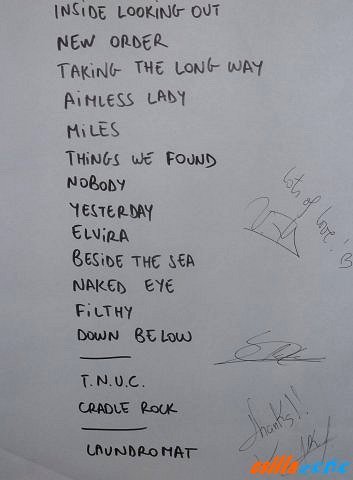 INSIDE LOOKING OUT
NEW ORDER
TAKING THE LONG WAY
AIMLESS LADY
MILES
THINGS WE FOUND
NOBODY
YESTERDAY
ELVIRA
BESIDE THE SEA
NAKED EYE
FILTHY
DOWN BELOW
T.N.U.C.
CRADLE ROCK
LAUNDROMAT
lots of love!
Thanks!!